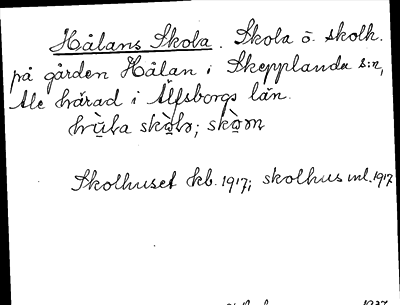 Hålans Skola. Skola o. skolh.
på gården Hålan i Skepplanda s:n,
Ale härad i Älfsborgs län.
Skolhuset kb. 1917; skolhus inl. 1917